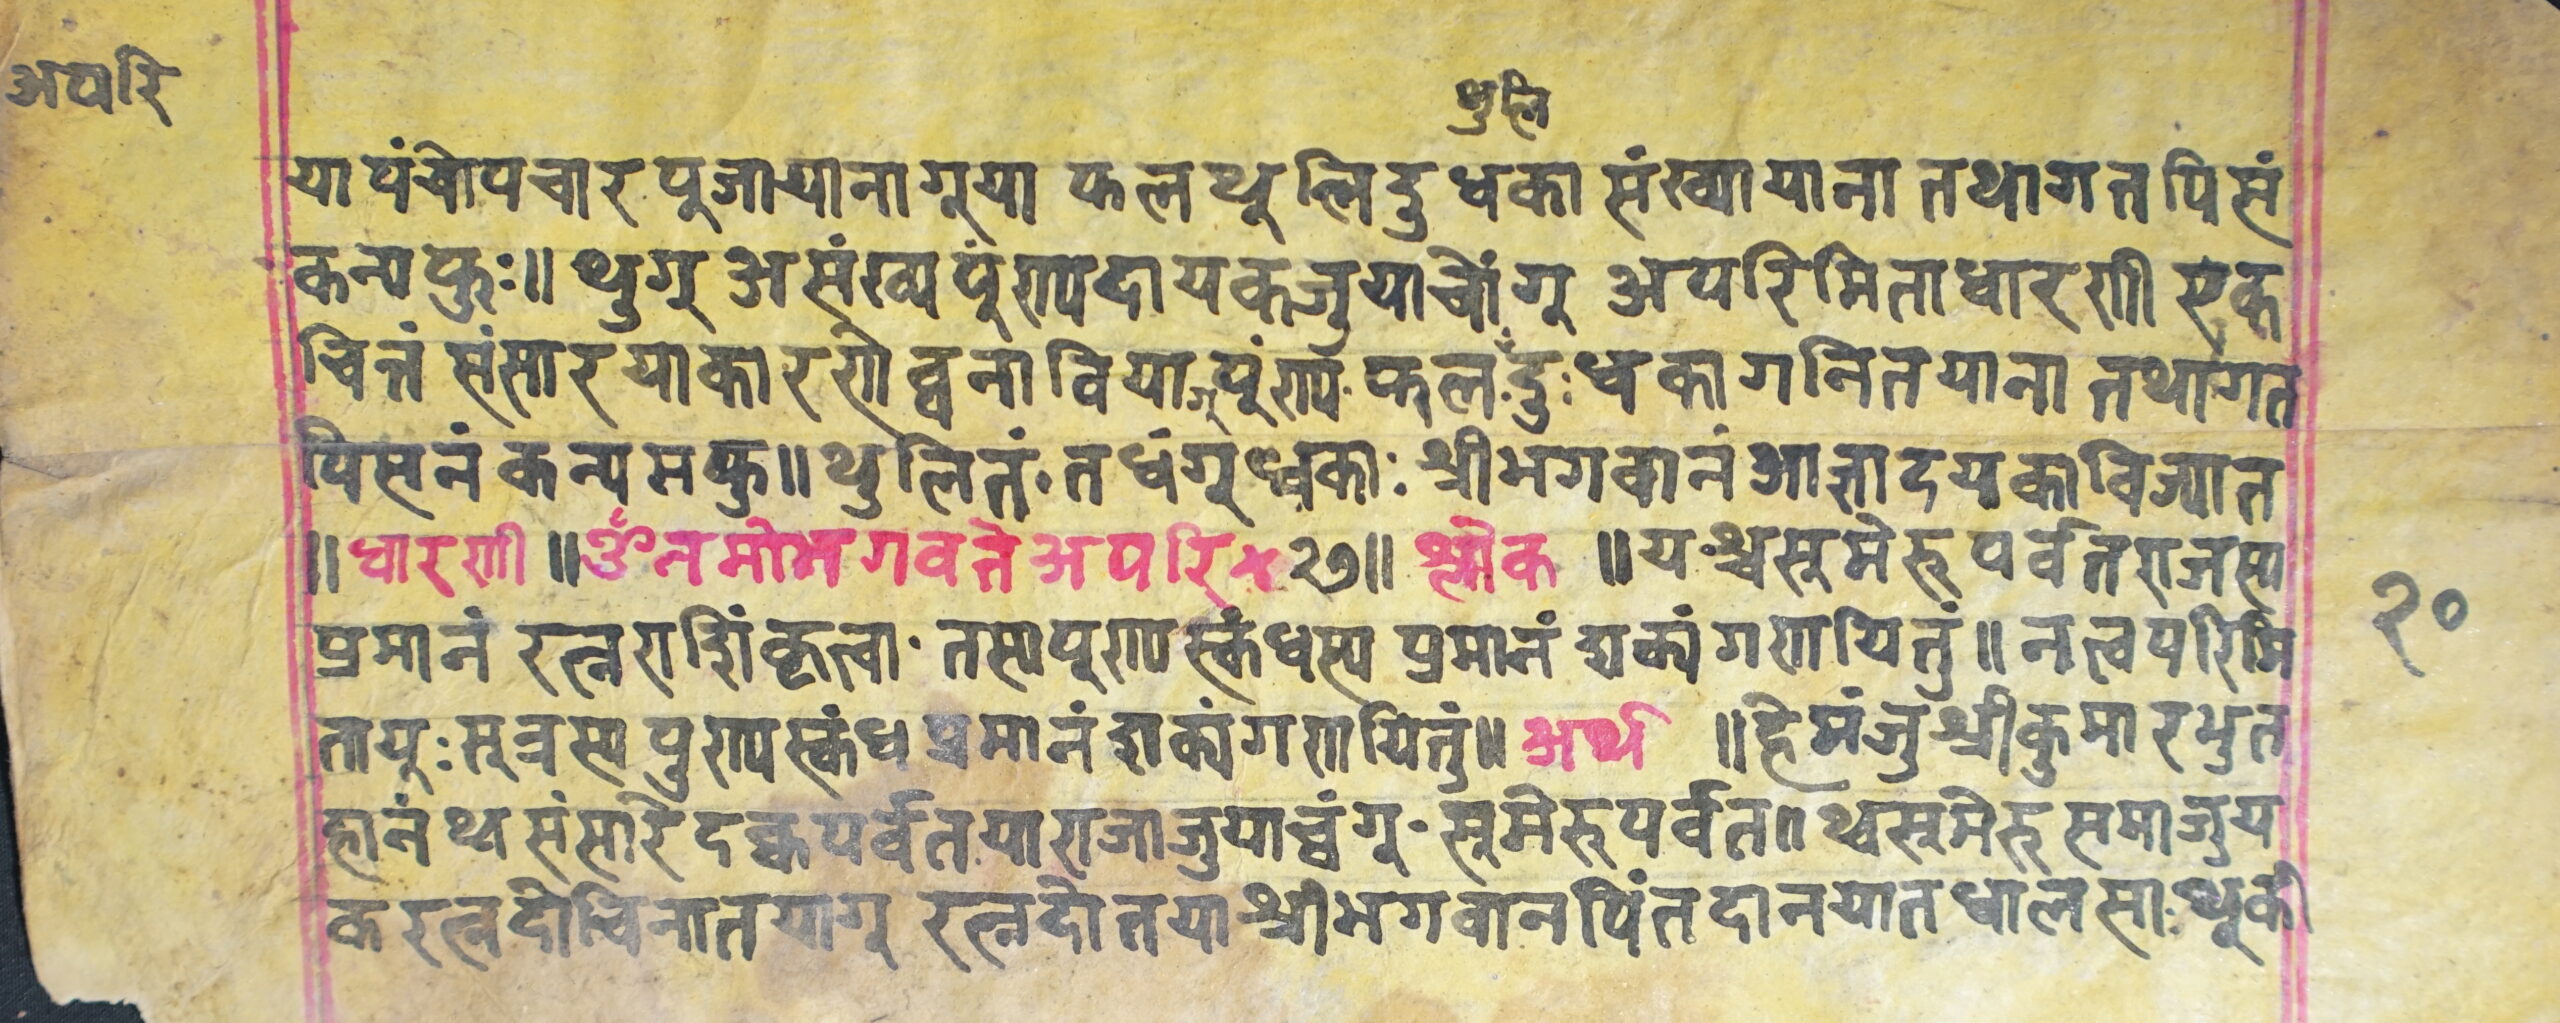 अपरि
थुलि
या पंचोपचार पुजायानागूया फल थूलि दु धका संख्यायाना तथागत पिसं
कन्य फुः॥ थुगू असंख्य पुंण्यदायकजुयाचोंगू अपरिमिताधारणी एक
चित्तं संसारयाकारणे ब्वनावियागू पुंण्य फल दुः धका गनितयाना तथागत
पिसनं कन्य मफु॥ थुलितं तधंगू धकाः श्रीभगवानं आज्ञादयकाविज्यात
॥ धारणी ॥ ॐ नमोभगवते अपरि × २७॥ श्लोक ॥ यश्चसुमेरुपर्वतराजस्य
प्रमानं रत्नराशिंकृत्वा तस्यपुण्यस्कंधस्य प्रमानं शक्यं गणायितुं॥ नत्वपरिमि
तायुःसूत्रस्य पुण्यस्कंध प्रमानं शक्यंगणायितुं॥ अर्थ ॥ हे मंजुश्रीकुमारभुत
हानं थ्व संसारे दक्व पर्वतयाराजाजुयाच्वंगु सुमेरुपर्वत॥ थ्वसुमेरुसमाजुय
क रत्नदोचिनातयागु रत्नदोतया श्रीभगवानपिंत दानयात धालसाः थूकी
२०